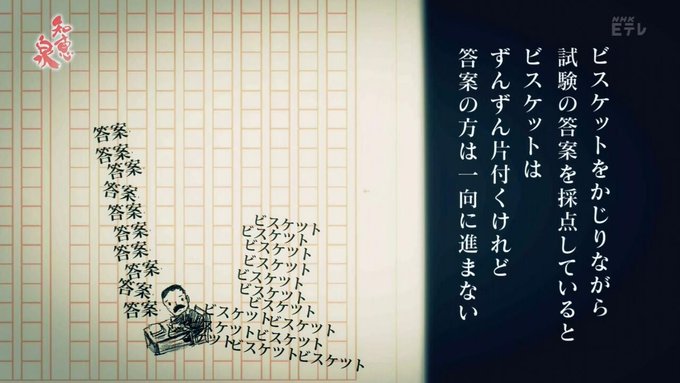 知恵泉
NHK
Eテレ
ビスケットをかじりながら
試験の答案を採点していると
ビスケットは
ずんずん片付くけれど
答案の方は一向に進まない
ビスケット
ビスケット
ビスケット
ビスケット
ビスケット
ビスケット
ビスケット
ビスケットビスケット
スケットビスケット
ットビスケットビスケット
答案
答案
答案
答案
答案
答案
答案
答案
答案
答案